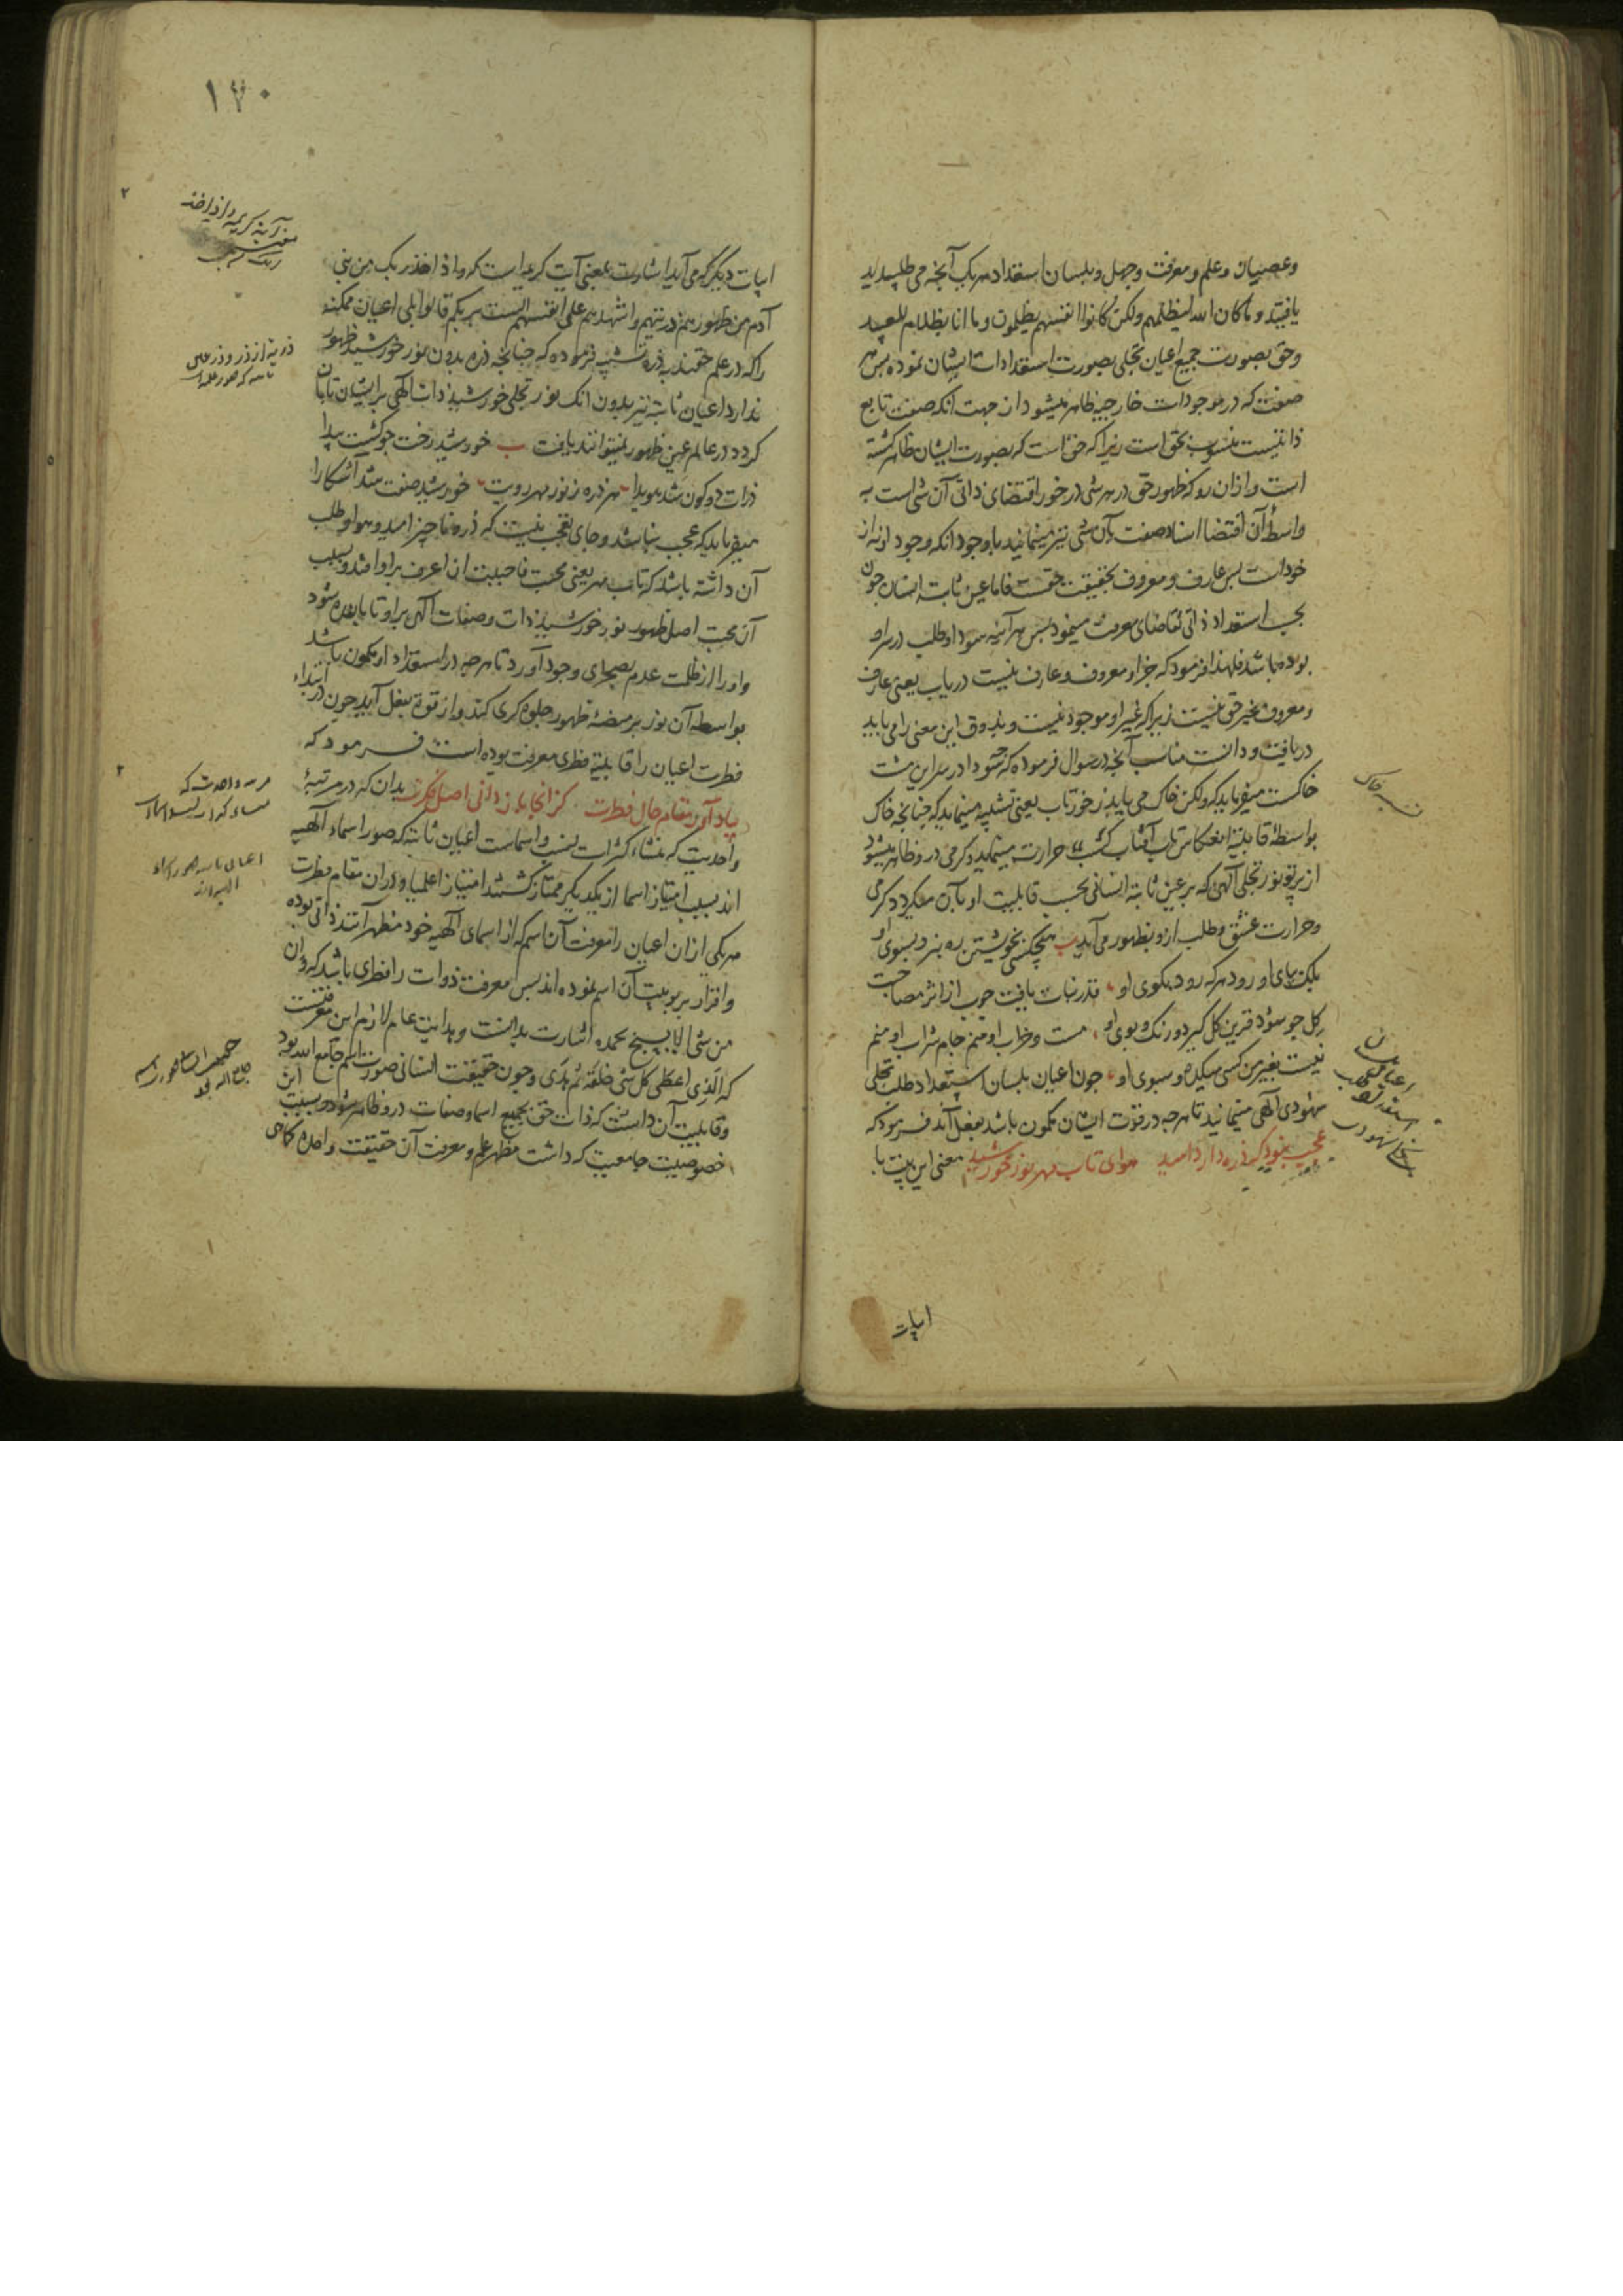 وعصیان وعلم ومعرفت وجهل وبلسان استعداد هریک آنچه می طلبیدید
یافتید و ماکان الله لیظلمهم ولکن کانوا انفسهم یظلمون وما انا بظلام للعبید
وحق بصورت جمیع اعیان تجلی بصورت استعدادات ایشان نموده پس هر
صفت که در موجودات خارجیه ظاهر میشود از جهت آنکه صفت تابع
ذاتیست منسوب بحق است زیرا که حق است که بصورت ایشان ظاهر گشته
است وازان رو که ظهور حق در هر شی در خور اقتضای ذاتی آن شی است به
واسطه آن اقتضا اسناد صفت بآن شی نیز مینمایند با وجود آنکه وجود او نه از
خود است پس عارف ومعروف بحقیقت حقست فاما عین ثابته انسان چون
بحسب استعداد ذاتی تقاضای معرفت مینمود پس هر آینه سودا وطلب در سر او
بوده باشد فلهذا فرمود که جز او معروف وعارف نیست دریاب یعنی عارف
ومعروف بغیر حق نیست زیرا که غیر او موجود نیست وبذوق این معنی را می باید
دریافت ودانست مناسب آنچه در سوال فرموده که چه سودا در سر این مشت
خاکست میفرماید که ولکن خاک می یابد ز خور تاب یعنی تشبیه مینماید که چنانچه خاک
بواسطه قابلیة انعکاس تاب آفتاب کسب حرارت مینماید وگرمی درو ظاهر میشود
از پرتو نور تجلی الهی که بر عین ثابته انسانی بحسب قابلیت او تابان میگردد گرمی
وحرارت عشق وطلب ازو بظهور می آید ب هیچکسی بخویشتن ره نبرد بسوی او
بلک بپای او رود هرکه رود بکوی او قدر نبات یافت چوب از اثر مصاحبت
گل چو شود قرین گل گیرد رنگ وبوی او مست وخراب او منم جام شراب او منم
نیست بغیر من کسی میکده وسبوی او چون اعیان بلسان استعداد طلب تجلی
شهودی الهی مینمایند تا هرچه در قوت ایشان مکمون باشد بفعل آید فرمود که
عجب نبود که ذره دارد امید هوای تاب مهر ونور خورشید معنی این بیت با
تشبیه خاک
ابیات
۱۷۰
ابیات دیگر که می آید اشارت بمعنی آیت کریمه است که واذ اخذ ربک من بنی
آدم من ظهورهم ذریتهم واشهدهم علی انفسهم الست بربکم قالوا بلی اعیان ممکنه
را که در علم حقند بذره تشبیه فرموده که چنانچه ذره بدون نور خورشید ظهور
ندارد اعیان ثابته نیز بدون آنک نور تجلی خورشید ذات الهی بر ایشان تابان
گردد در عالم عین ظهور نمیتوانند یافت ب خورشید رخت چو گشت پیدا
ذرات دو کون شد هویدا هر ذره ز نور مهر رویت خورشید صفت شد آشکارا
میفرماید که عجب نباشد وجای تعجب نیست که ذره ناچیز امید وهوا وطلب
آن داشته باشد که تاب مهر یعنی محبت فاحببت ان اعرف براو افتد وبسبب
آن محبت اصل ظهور نور خورشید ذات وصفات الهی براو تابان شود
واورا از ظلمت عدم بصحرای وجود آورد تا هرچه در استعداد او مکمون باشد
بواسطه آن نور بر منصه ظهور جلوه گری کند واز قوة بفعل آید چون در ابتداء
فطرت اعیان را قابلیة فطری معرفت بوده است فرمود که
بیاد آور مقام حال فطرت کز آنجا باز دانی اصل فکرت بدان که در مرتبهٔ
واحدیت که منشاء کثرات نسب واسماست اعیان ثابته که صور اسماء الهیه
اند بسبب امتیاز اسما از یکدیگر ممتاز گشتند امتیازا علمیا ودران مقام فطرت
هر یکی از ان اعیان را معرفت آن اسم که از اسمای الهیه خود مظهر آنند ذاتی بوده
واقرار بربوبیت آن اسم نموده اند پس معرفت ذوات را فطری باشد که وان
من شی الا یسبح بحمده اشارت بدانست وهدایت عام لازم این معرفتست
که الذی اعطی کل شی خلقه ثم هدی وچون حقیقت انسانی صورت اسم جامع الله بود
وقابلیت آن داشت که ذات حق بجمیع اسما وصفات درو ظاهر شود وبسبب این
خصوصیت جامعیت که داشت مظهر علم ومعرفت آن حقیقت واحده کماهی